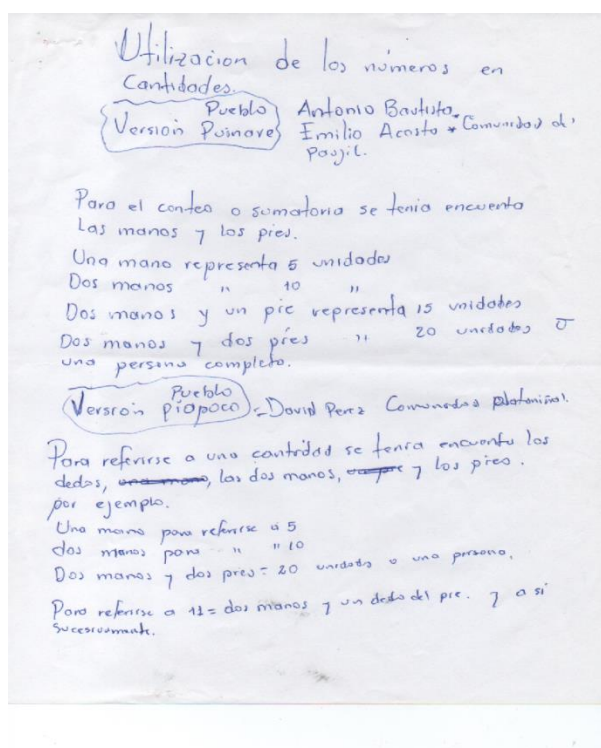 Utilizacion de los números en
Cantidades.
Pueblo Antonio Bautista.
Versión Puinave Emilio Acosta * Comunidad de
Paujil.
Para el conteo o sumatoria se tenia encuenta
Las manos y los pies.
Una mano representa 5 unidades
Dos manos " 10 "
Dos manos y un pie representa 15 unidades
Dos manos y dos pies " 20 unidades o
una persona completo.
Pueblo
Versión piapoco = David Perez Comunidad platanillal.
Para referirse a una cantidad se tenia encuenta los
dedos, una mano, las dos manos, y los pies.
por ejemplo.
Una mano para referirse a 5
dos manos para " " 10
Dos manos y dos pies = 20 unidades o una persona.
Para referirse a 11 = dos manos y un dedo del pie. y a si
sucesivamente.